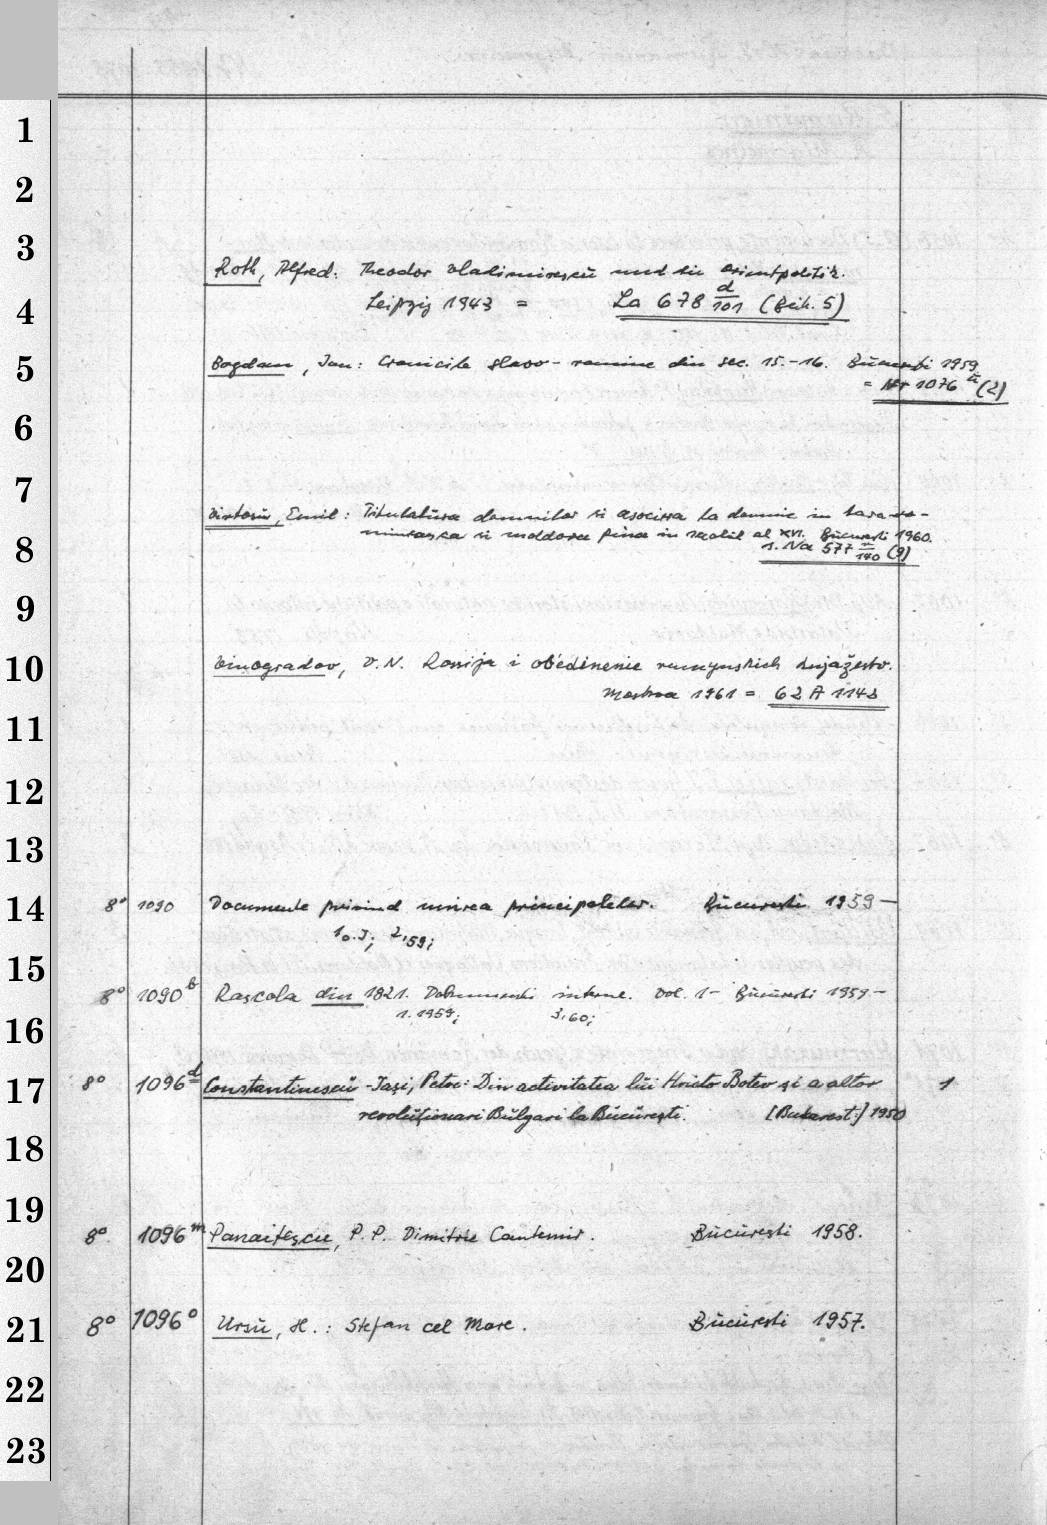 Roth, Alfred: Theodor Vladimirescu und die Orientpolitik.
Leipzig 1943 = La 678 d/101 (Beih. 5)
Bogdan, Ian: Cronicile slavo-romine din sec. 15.-16. Bŭcuresti 1959
= 1076 (2)
Virtosu, Emil: Titulatura domnilor si asocirea la domnie in tara ro-
mineasca si moldova pina in secolul al XVI. Bŭcuresti 1960.
s. Na 577 /140 (9)
Vinogradov, V. N. Rossija i ob'edinenie rumynskich knjažestv.
Moskva 1961 = 62 A 1143
8° 1090 Documente privind unirea principatelor. Bŭcuresti 1959 —
1 o.J; 2,59;
8° 1090 b Rascola din 1821. Dokumente interne. Vol. 1 - Bŭcuresti 1959 —
1. 1959; 3,60;
8° 1096 d Constantinescŭ-Iaşi, Petre: Din activitatea lŭi Hristo Botev şi a altor 1
revolŭţionari Bŭlgari la Bŭcŭreşti. [Bukarest:] 1950
8° 1096 m Panaitescu, P. P. Dimitrie Cantemir. Bŭcŭreşti 1958.
8° 1096 o Ursŭ, H.: Stefan cel Mare. Bŭcŭresti 1957.
1
2
3
4
5
6
7
8
9
10
11
12
13
14
15
16
17
18
19
20
21
22
23